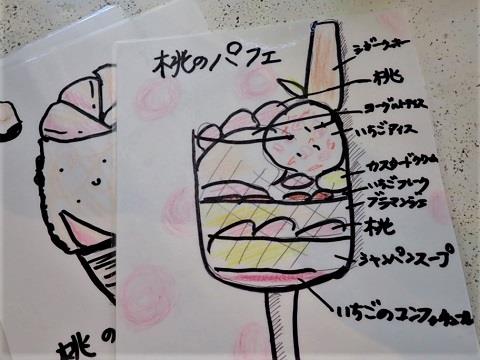 桃のパフェ
シガークッキー
桃
ヨーグルトアイス
いちごアイス
カスタードクリーム
いちごフレーク
ブラマンジェ
桃
シャンパンスープ
いちごのコンフィチュール
桃の